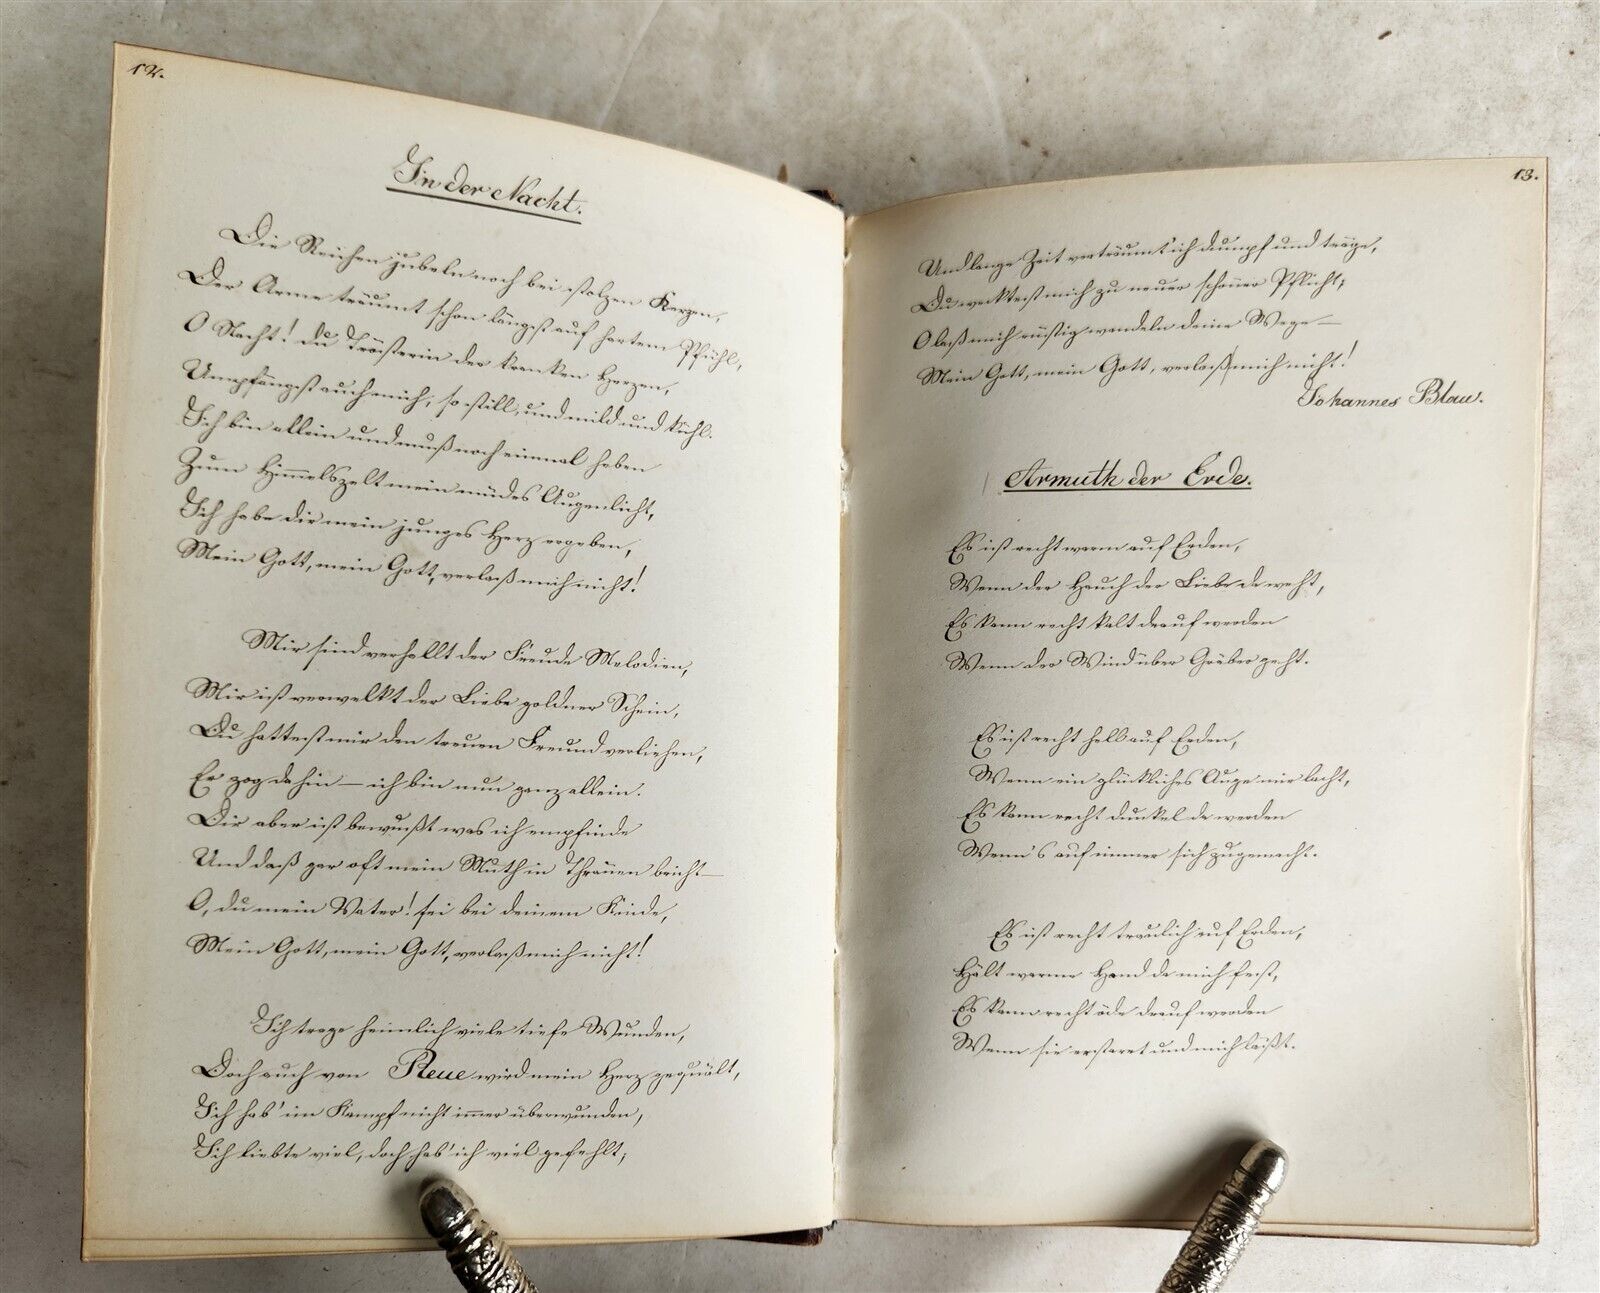 12.
In der Nacht.
Die Reichen jubeln noch bei stolzen Kerzen,
Der Arme träumt schon längst auf hartem Pfühl,
O Nacht! du Trösterin der kranken Herzen,
Umpfängst auch mich, so still, und mild und kühl.
Ich bin allein und muß noch einmal heben
Zum Himmelszelt mein müdes Augenlicht,
Ich habe dir mein junges Herz ergeben,
Mein Gott, mein Gott, verlaß mich nicht!
Mir sind verhallt der Freude Melodien,
Mir ist verwelkt der Liebe goldner Schein,
Du hattest mir den treuen Freund verliehen,
Er zog dahin – ich bin nun ganz allein.
Dir aber ist bewußt was ich empfinde
Und daß gar oft mein Muth in Thränen bricht –
O, du mein Vater! sei bei deinem Kinde,
Mein Gott, mein Gott, verlaß mich nicht!
Ich trage heimlich viele tiefe Wunden,
Doch auch von Reue wird mein Herz gequält,
Ich hab' im Kampf nicht immer überwunden,
Ich liebte viel, doch hab' ich viel gefehlt;
13.
Und lange Zeit verträumt' ich dumpf und träge,
Du wecktest mich zu neuer schöner Pflicht;
O laß mich rüstig wandeln deine Wege –
Mein Gott, mein Gott, verlaß mich nicht!
Johannes Blau.
Armuth der Erde.
Es ist recht warm auf Erden,
Wenn der Hauch der Liebe da weht,
Es kann recht kalt drauf werden
Wenn der Wind über Gräber geht.
Es ist recht hell auf Erden,
Wenn ein glückliches Auge mir lacht,
Es kann recht dunkel da werden
Wenn's auf immer sich zugemacht.
Es ist recht traulich auf Erden,
Hält warme Hand da mich fest,
Es kann recht öde drauf werden
Wenn sie erstarrt und mich läßt.